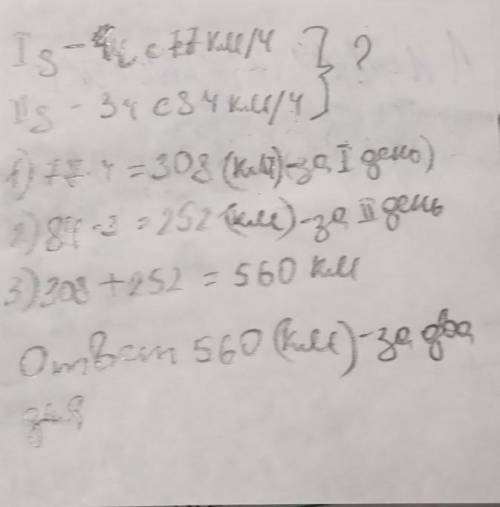 I S - 4ч с 77 км/ч } ?
II S - 3ч с 84 км/ч }
1) 77·4=308 (км)-за I день)
2) 84·3=252 (км)-за II день
3) 308+252=560 км
Ответ 560 (км)-за два
дня